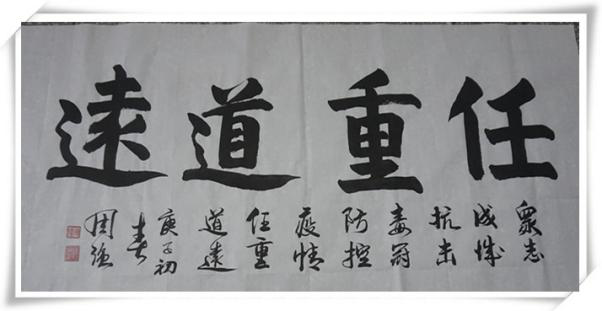 任重道遠
眾志
成城
抗击
毒冠
防控
疫情
任重
道遠
庚子初
春
周强